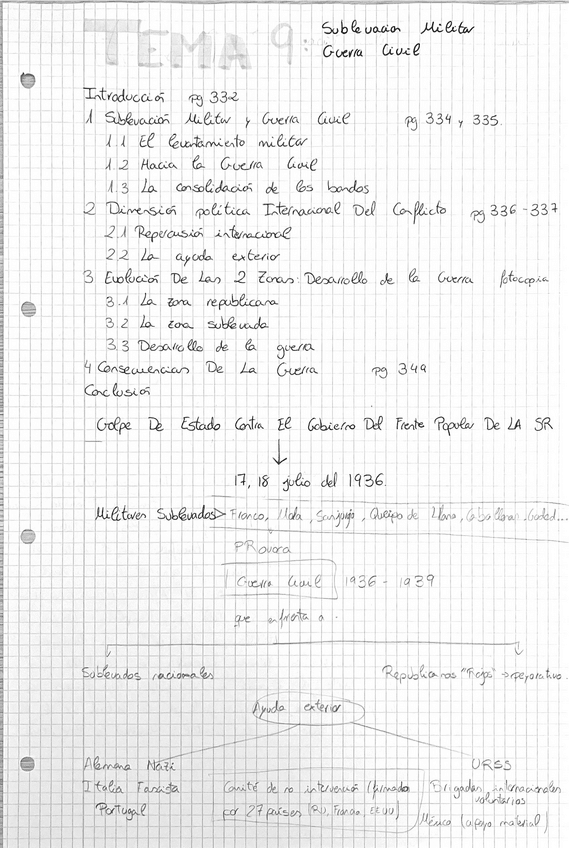 TEMA 9:
Sublevación Militar
Guerra Civil
Introducción pg 332
1 Sublevación Militar y Guerra Civil pg 334 y 335.
1.1 El levantamiento militar
1.2 Hacia la Guerra Civil
1.3 La consolidación de los bandos
2 Dimensión política Internacional Del Conflicto pg 336-337
2.1 Repercusión internacional
2.2 La ayuda exterior
3 Evolución De Las 2 Zonas: Desarrollo de la Guerra fotocopia
3.1 La zona republicana
3.2 La zona sublevada
3.3 Desarrollo de la guerra
4 Consecuencias De La Guerra pg 349
Conclusión
Golpe De Estado Contra El Gobierno Del Frente Popular De LA SR
17, 18 julio del 1936.
Militares Sublevados > Franco, Mola, Sanjurjo, Queipo de Llano, Cabanellas, Goded...
PRovoca
Guerra Civil 1936-1939
que enfrenta a:
Sublevados nacionales
Republicanos "Rojos" → peyorativo.
Ayuda exterior
Alemana Nazi
Italia Fascista
Portugal
Comité de no intervención (firmado
por 27 países (RU, Francia, EEUU)
URSS
Brigadas internacionales
voluntarios
México (apoyo material)